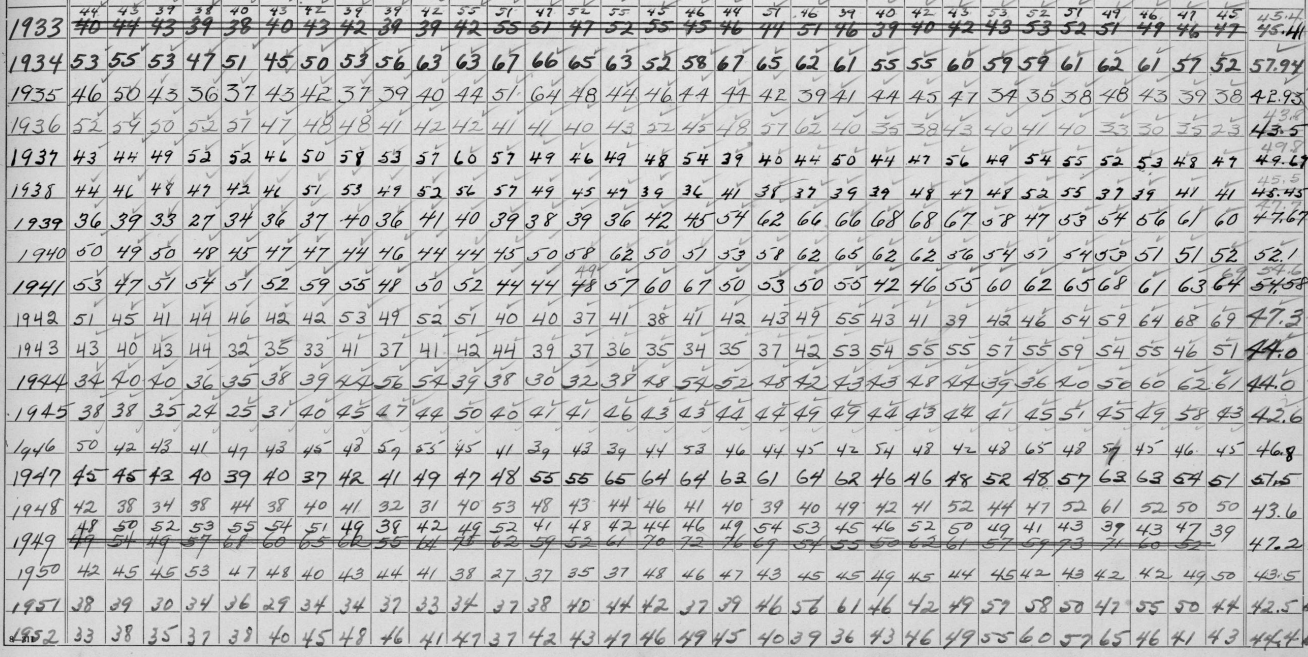 44 43 39 38 40 43 42 39 39 42 55 51 47 52 55 45 46 49 51 46 39 40 42 43 53 52 51 49 46 47 45 45.4
1933 40 44 43 39 38 40 43 42 39 39 42 55 51 47 52 55 45 46 44 51 46 39 40 42 43 53 52 51 49 46 47 45.41
1934 53 55 53 47 51 45 50 53 56 63 63 67 66 65 63 52 58 67 65 62 61 55 55 60 59 59 61 62 61 57 52 57.94
1935 46 50 43 36 37 43 42 37 39 40 44 51 64 48 44 46 44 44 42 39 41 44 45 47 34 35 38 48 43 39 38 42.93
43.5
1936 52 59 50 52 57 47 48 48 41 42 42 41 41 40 43 52 45 48 57 62 40 35 38 43 40 41 40 33 30 35 23 43.5
49.8
1937 43 44 49 52 52 46 50 58 53 57 60 57 49 46 49 48 54 39 40 44 50 44 47 56 49 54 55 52 53 48 47 49.67
45.5
1938 44 46 48 47 42 46 51 53 49 52 56 57 49 45 47 39 36 41 38 37 39 39 48 47 48 52 55 37 39 41 41 45.45
47.7
1939 36 39 33 27 34 36 37 40 36 41 40 39 38 39 36 42 45 54 62 66 66 68 68 67 58 47 53 54 56 61 60 47.67
1940 50 49 50 48 45 47 47 44 46 44 44 45 50 58 62 50 51 53 58 62 65 62 62 56 54 57 54 53 51 51 52 52.1
49 69 54.6
1941 53 47 51 54 51 52 59 55 48 50 52 44 44 48 57 60 67 50 53 50 55 42 46 55 60 62 65 68 61 63 64 54.58
1942 51 45 41 44 46 42 42 53 49 52 51 40 40 37 41 38 41 42 43 49 55 43 41 39 42 46 54 59 64 68 69 47.3
1943 43 40 43 44 32 35 33 41 37 41 42 44 39 37 36 35 34 35 37 42 53 54 55 55 57 55 59 54 55 46 51 44.0
1944 34 40 40 36 35 38 39 44 56 54 39 38 30 32 38 48 54 52 48 42 43 43 48 44 39 36 40 50 60 62 61 44.0
1945 38 38 35 24 25 31 40 45 47 44 50 40 41 41 46 43 43 44 44 49 49 44 43 44 41 45 51 45 49 58 43 42.6
1946 50 42 43 41 47 43 45 48 57 55 45 41 39 43 39 44 53 46 44 45 42 54 48 42 48 65 48 57 45 46 45 46.8
1947 45 45 43 40 39 40 37 42 41 49 47 48 55 55 65 64 64 63 61 64 62 46 46 48 52 48 57 63 63 54 51 51.5
1948 42 38 34 38 44 38 40 41 32 31 40 53 48 43 44 46 41 40 39 40 49 42 41 52 44 47 52 61 52 50 50 43.6
48 50 52 53 55 54 51 49 38 42 49 52 41 48 42 44 46 49 54 53 45 46 52 50 49 41 43 39 43 47 39
1949 49 54 49 57 68 60 65 62 55 64 75 62 59 52 61 70 72 76 69 54 55 50 62 61 57 59 73 71 60 52 47.2
1950 42 45 45 53 47 48 40 43 44 41 38 27 37 35 37 48 46 47 43 45 45 49 45 44 45 42 43 42 42 49 50 43.5
1951 38 39 30 34 36 29 34 34 37 33 34 37 38 40 44 42 37 39 46 56 61 46 42 49 57 58 50 47 55 50 44 42.5
1952 33 38 35 37 38 40 45 48 46 41 47 37 42 43 47 46 49 45 40 39 36 43 46 49 55 60 57 65 46 41 43 44.4